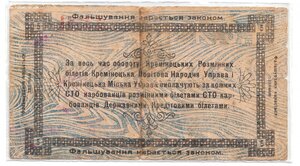 Фальшування карається законом.
За весь час обороту Кремінецьких Розмінних
білєтів Кремінецька Повітова Народня Управа і
Кремінецька Міська Управа сплачують за кожних
СТО карбованців розмінними білетами СТО кар-
бованців Державними Кредитовими білетами.
Фальшування карається законом.